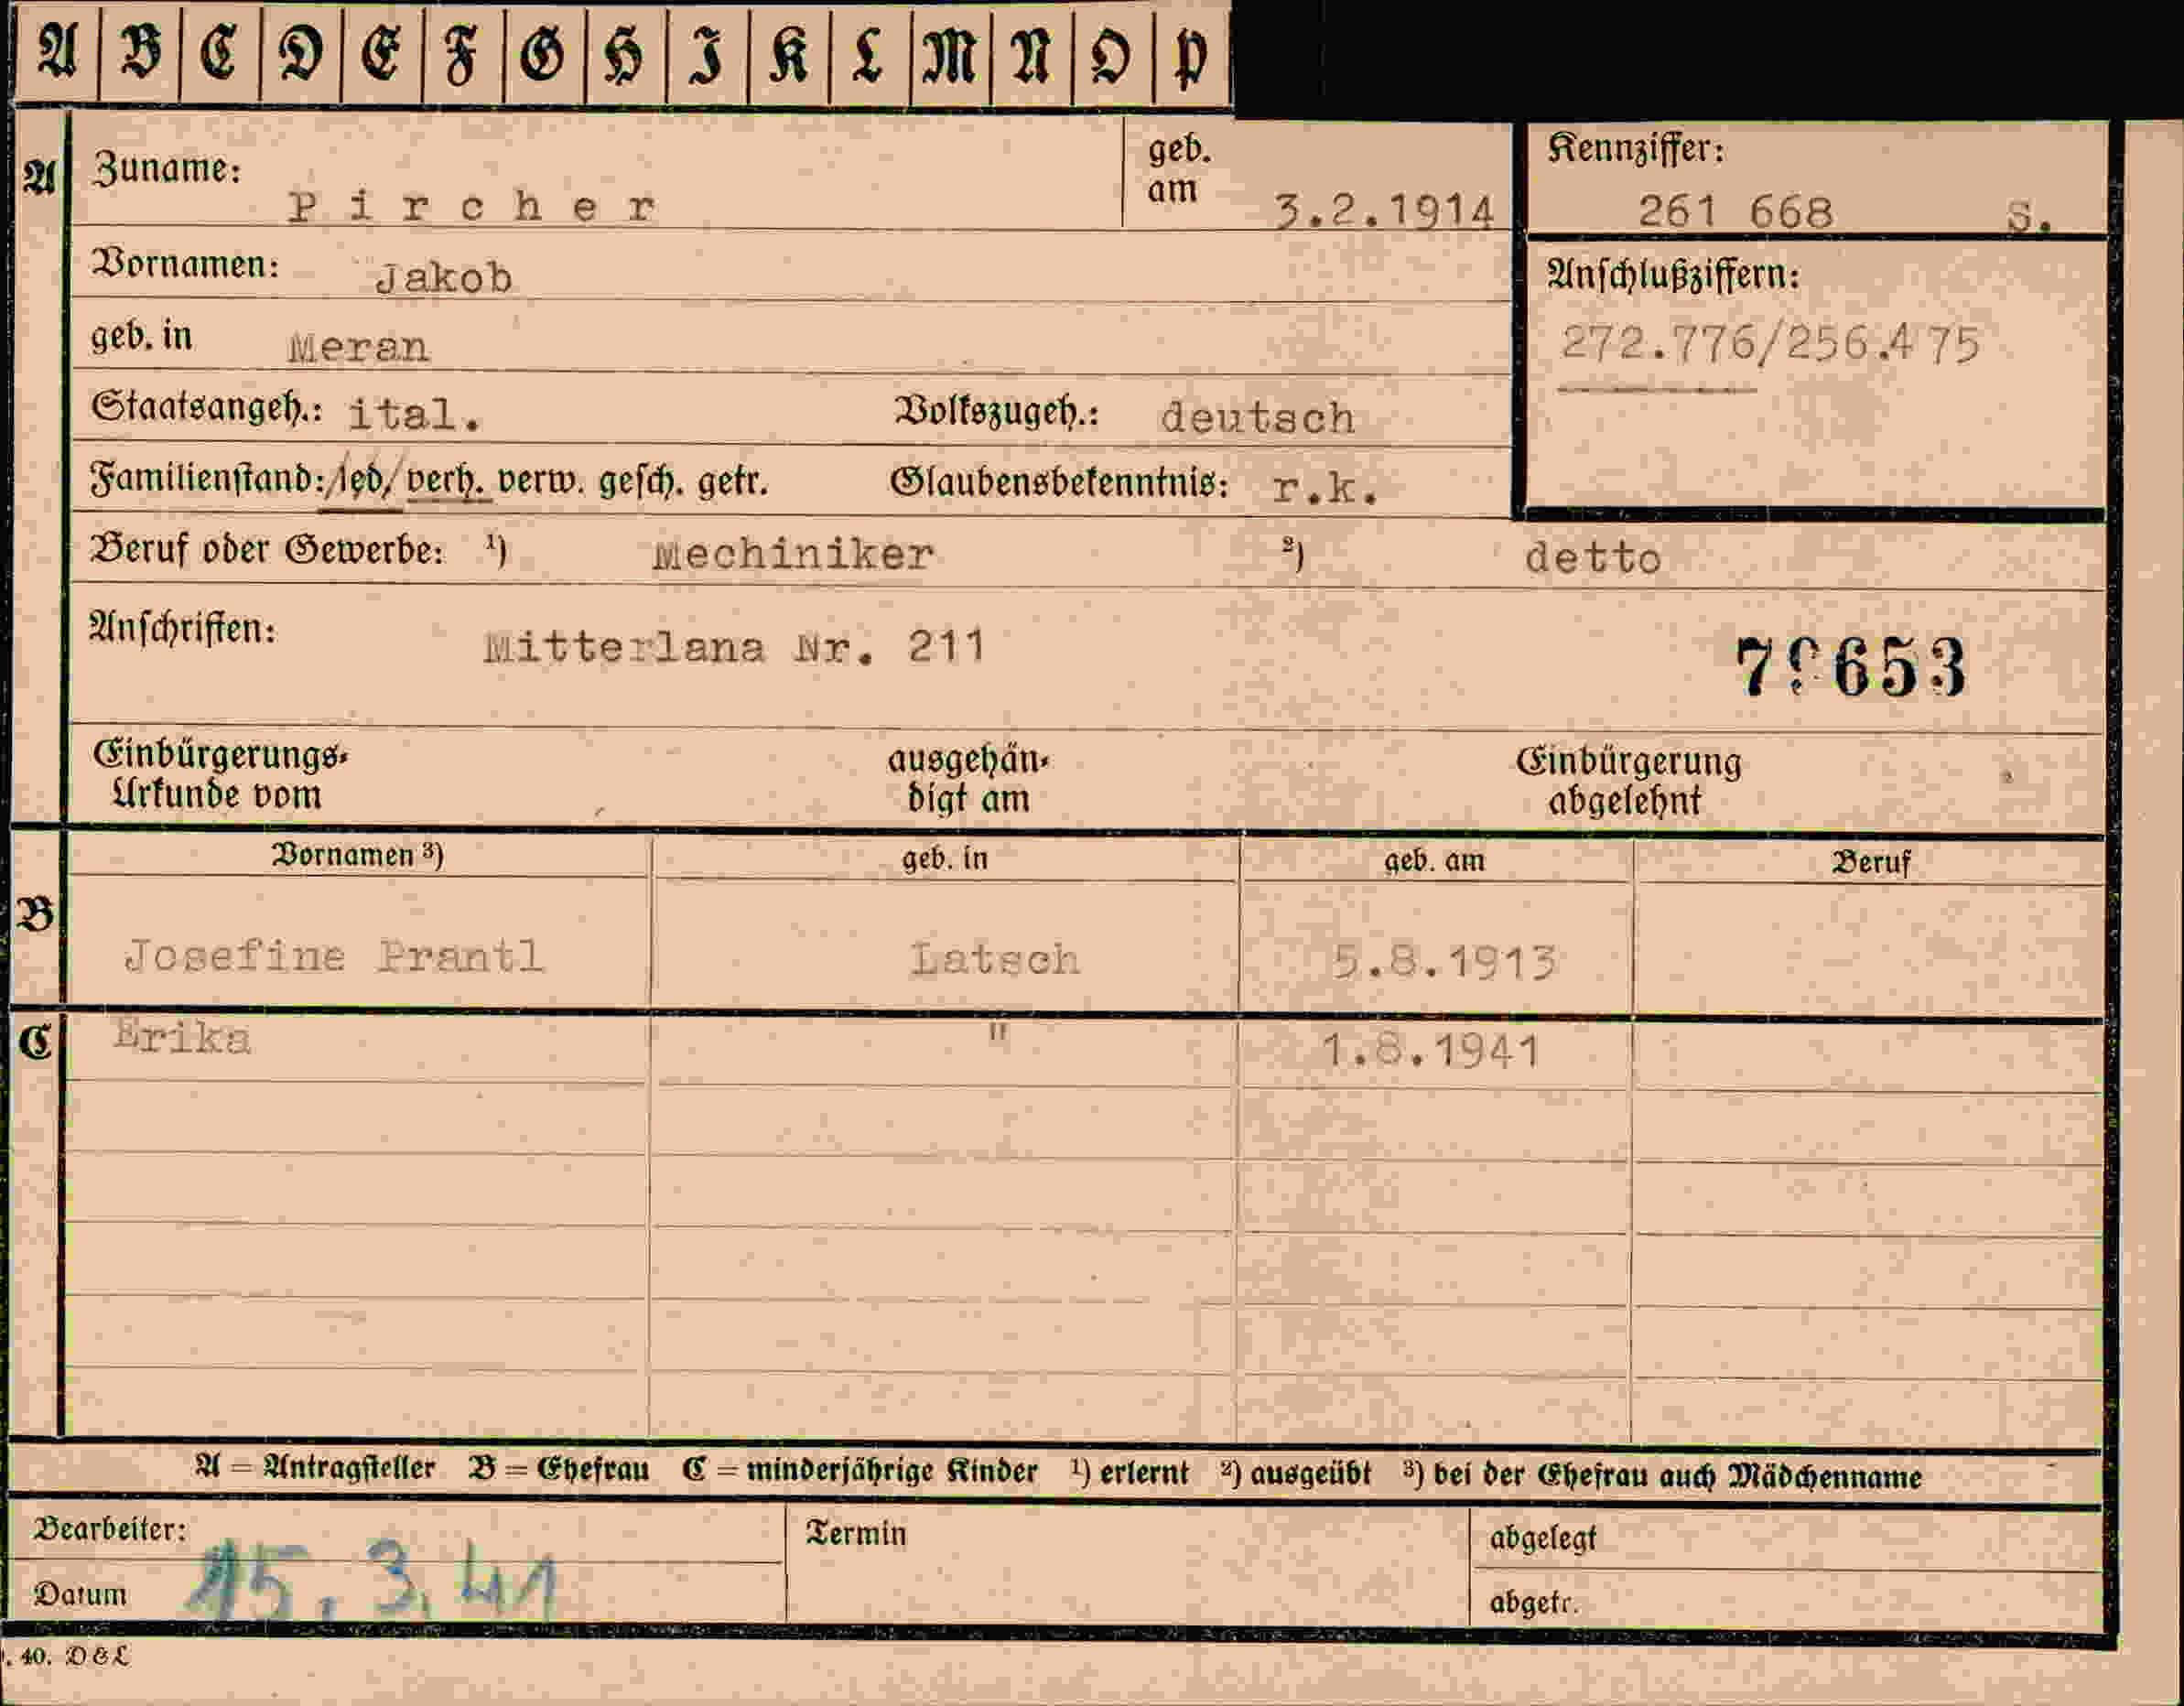 A B C D E F G H I K L M N O P
A Zuname: Pircher geb. am 3.2.1914
Kennziffer: 261 668 S.
Vornamen: Jakob
Anschlußziffern:
geb. in Meran
272.776/256.475
Staatsangeh.: ital. Volkszugeh.: deutsch
Familienstand: led. verh. verw. gesch. getr. Glaubensbekenntnis: r.k.
Beruf oder Gewerbe: ¹) Mechiniker ²) detto
Anschriften: Mitterlana Nr. 211
Einbürgerungs- ausgehän- Einbürgerung
Urkunde vom digt am abgelehnt
Vornamen ³) geb. in geb. am Beruf
B Josefine Prantl Latsch 5.8.1913
C Erika " 1.8.1941
A = Antragsteller B = Ehefrau C = minderjährige Kinder ¹) erlernt ²) ausgeübt ³) bei der Ehefrau auch Mädchenname
Bearbeiter: Termin abgelegt
Datum 15.3.41 abgetr.
. 40. D & L